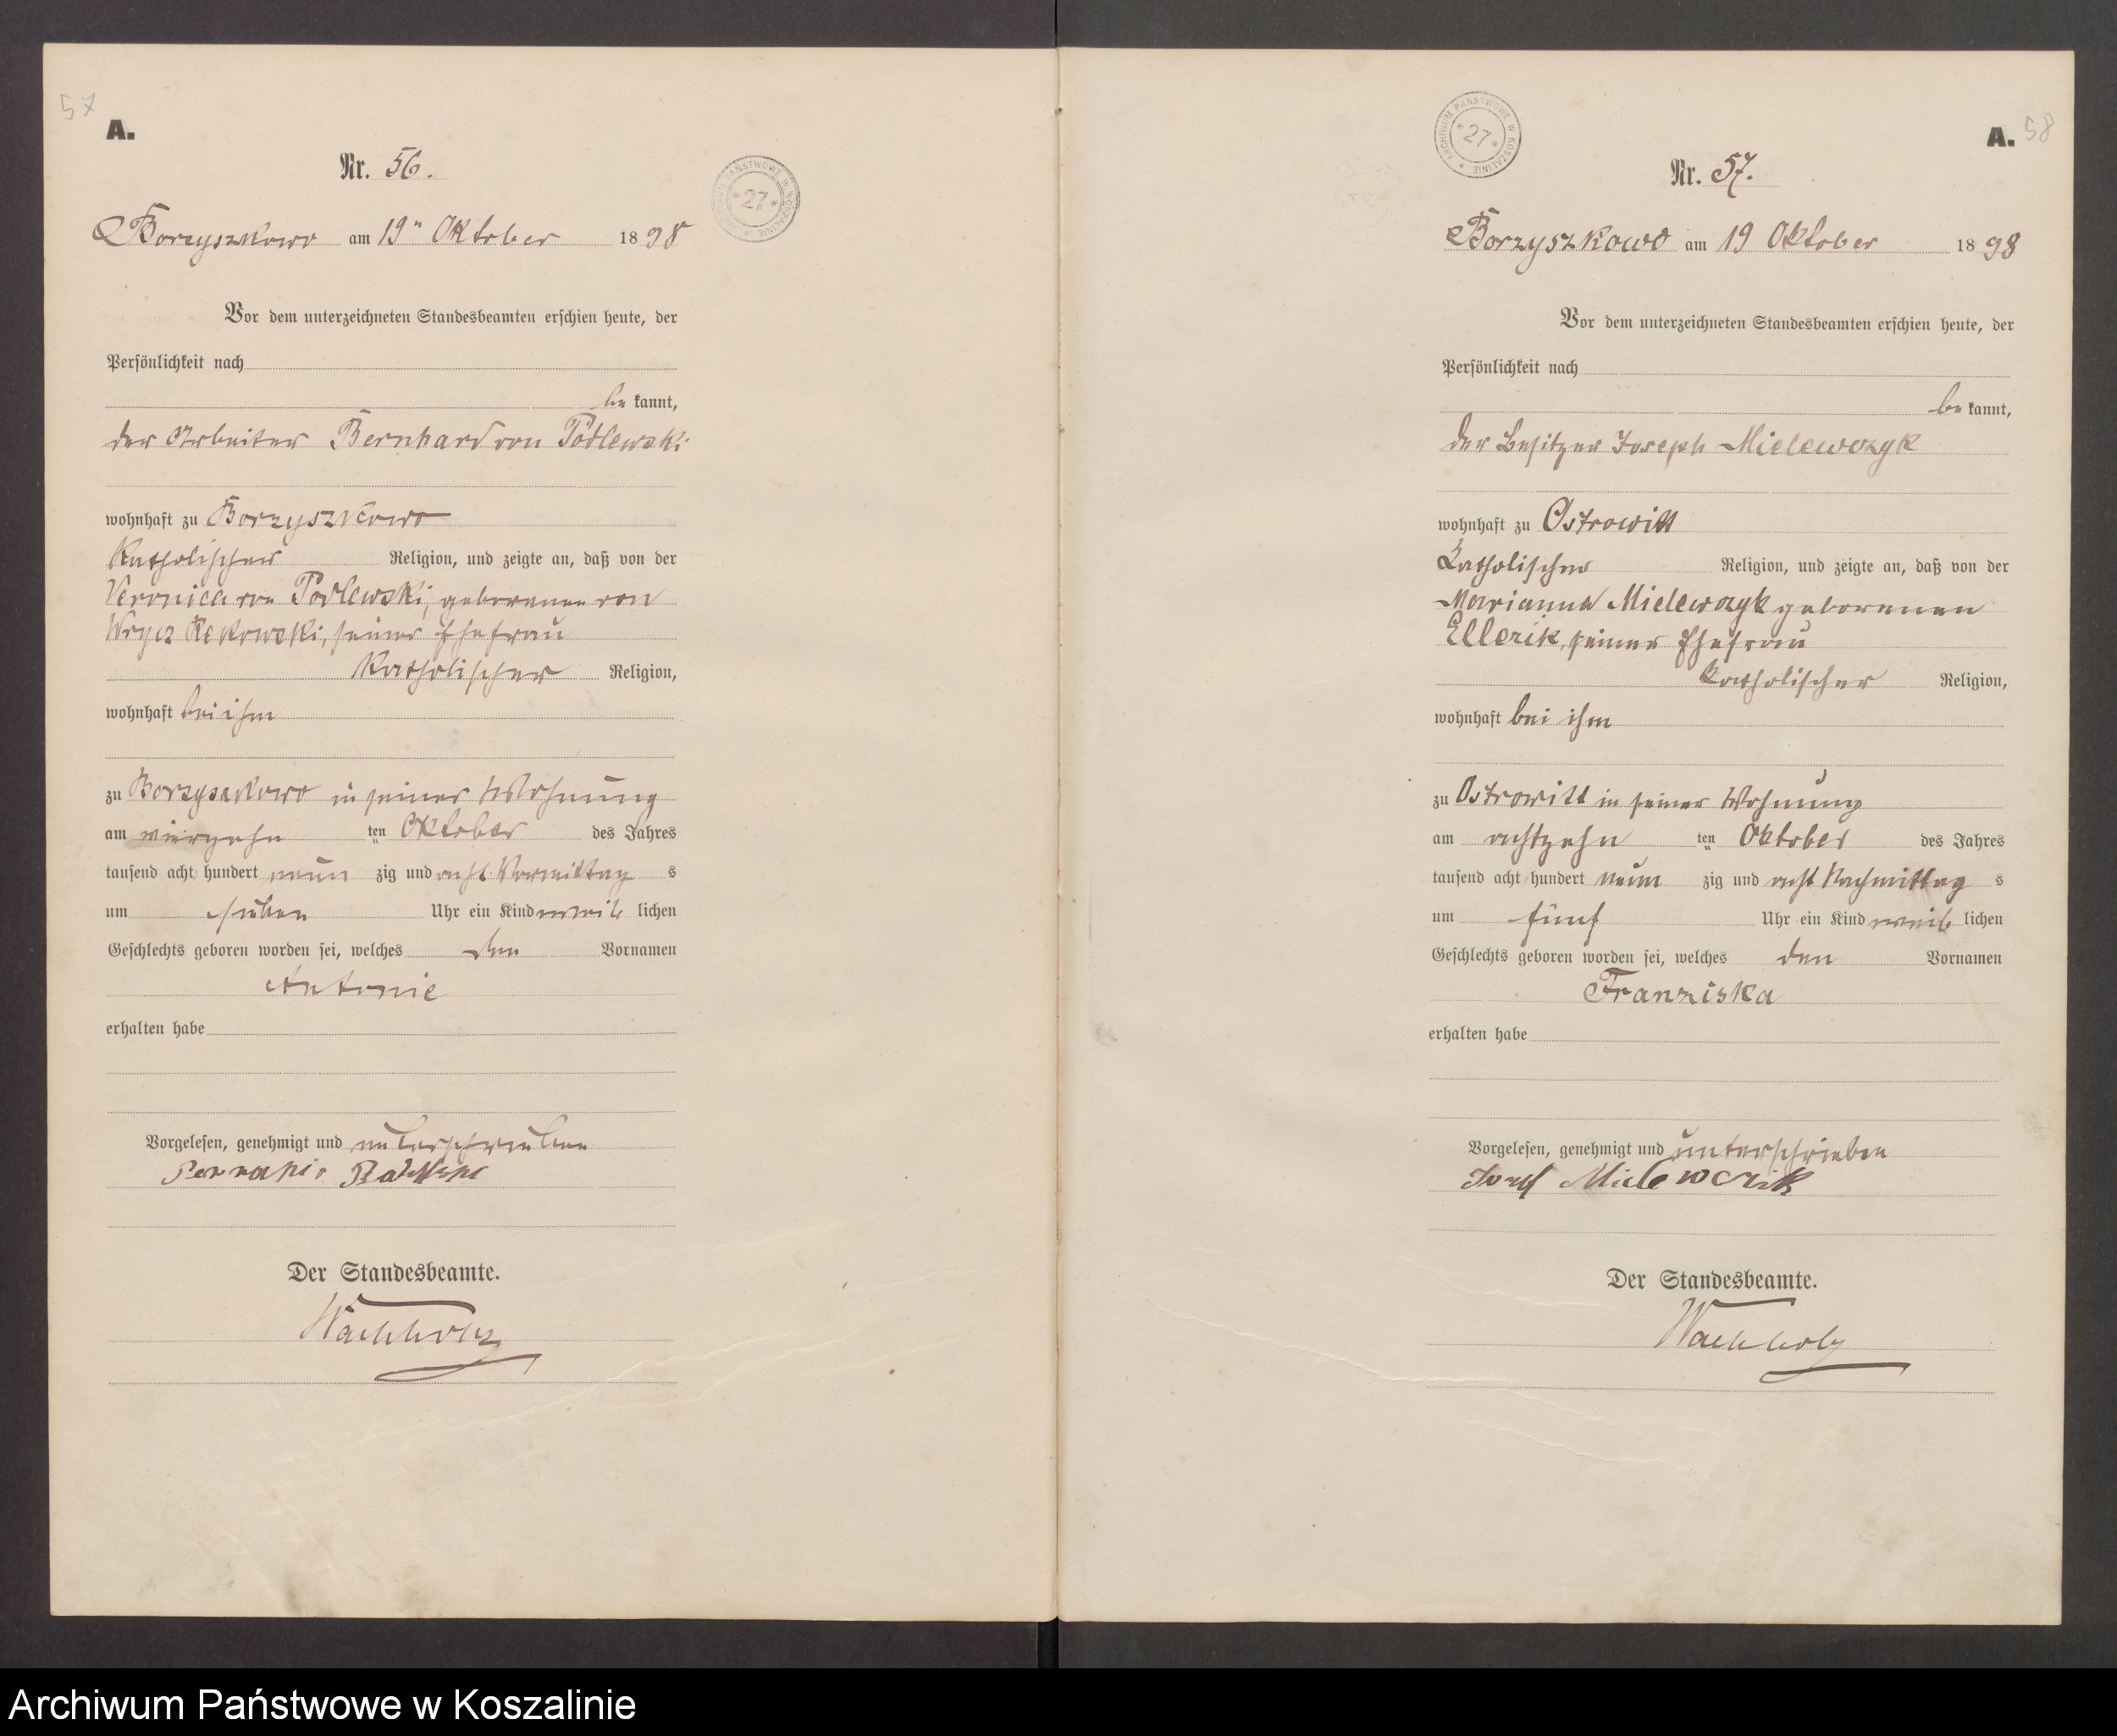 57
A.
Nr. 56.
ARCHIWUM PAŃSTWOWE W KOSZALINIE
* 27 *
Borzyszkowo am 19ⁿ Oktober 1898
Vor dem unterzeichneten Standesbeamten erschien heute, der
Persönlichkeit nach
be kannt,
der Arbeiter Bernhard von Podlewski
wohnhaft zu Borzyszkowo
Katholischer Religion, und zeigte an, daß von der
Veronica von Podlewski, geborenen von
Wrycz Rekowski, seiner Ehefrau
Katholischer Religion,
wohnhaft bei ihm
zu Borzyszkowo in seiner Wohnung
am vierzehn ten Oktober des Jahres
tausend acht hundert neun zig und acht Vormittag s
um sieben Uhr ein Kind weib lichen
Geschlechts geboren worden sei, welches den Vornamen
Antonie
erhalten habe
Vorgelesen, genehmigt und unterschrieben
Der Standesbeamte.
Wachholz
A. 58
ARCHIWUM PAŃSTWOWE W KOSZALINIE
* 27 *
Nr. 57.
Borzyszkowo am 19 Oktober 1898
Vor dem unterzeichneten Standesbeamten erschien heute, der
Persönlichkeit nach
be kannt,
der Besitzer Joseph Mielewczyk
wohnhaft zu Ostrowitt
Katholischer Religion, und zeigte an, daß von der
Marianna Mielewczyk geborenen
Ellerik, seiner Ehefrau
Katholischer Religion,
wohnhaft bei ihm
zu Ostrowitt in seiner Wohnung
am achtzehn ten Oktober des Jahres
tausend acht hundert neun zig und acht Nachmittag s
um fünf Uhr ein Kind weib lichen
Geschlechts geboren worden sei, welches den Vornamen
Franziska
erhalten habe
Vorgelesen, genehmigt und unterschrieben
Josef Mielewczik
Der Standesbeamte.
Wachholz
Archiwum Państwowe w Koszalinie